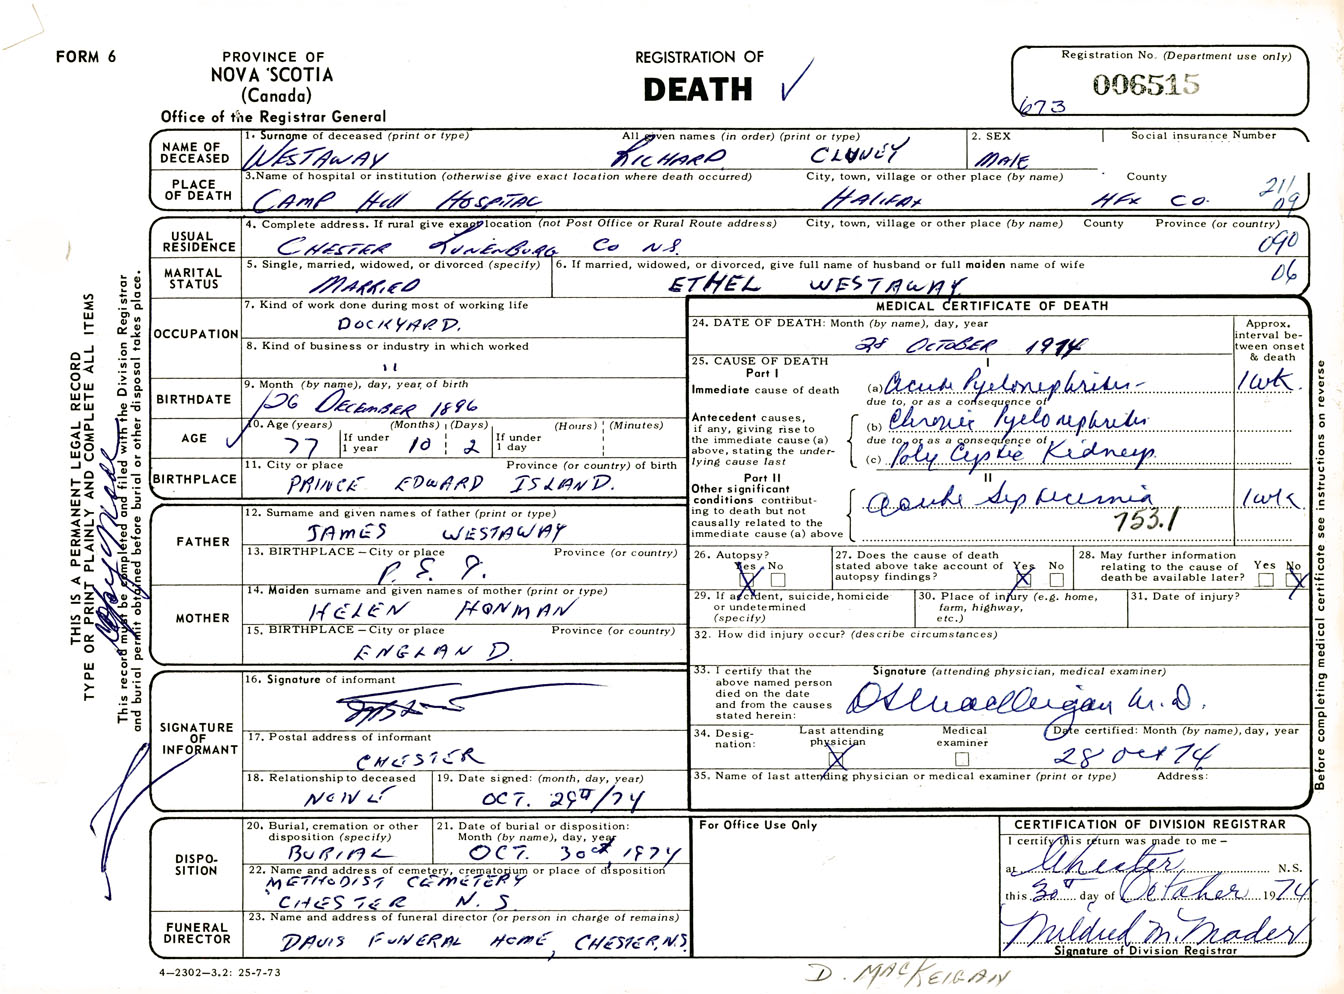 FORM 6
PROVINCE OF
NOVA SCOTIA
(Canada)
Office of the Registrar General
REGISTRATION OF
DEATH ✓
Registration No. (Department use only)
006515
673
NAME OF DECEASED
1. Surname of deceased (print or type) All given names (in order) (print or type) 2. SEX Social insurance Number
WESTAWAY RICHARD MALE
PLACE OF DEATH
3. Name of hospital or institution (otherwise give exact location where death occurred) City, town, village or other place (by name) County
CAMP HILL HOSPITAL HALIFAX HFX CO. 211 09
USUAL RESIDENCE
4. Complete address. If rural give exact location (not Post Office or Rural Route address) City, town, village or other place (by name) County Province (or country)
CHESTER LUNENBURG CO N.S. 090
MARITAL STATUS
5. Single, married, widowed, or divorced (specify) 6. If married, widowed, or divorced, give full name of husband or full maiden name of wife
MARRIED ETHEL WESTAWAY 06
OCCUPATION
7. Kind of work done during most of working life
DOCKYARD.
8. Kind of business or industry in which worked
"
BIRTHDATE
9. Month (by name), day, year of birth
26 DECEMBER 1896
AGE
10. Age (years) (Months) (Days) (Hours) (Minutes)
77 If under 1 year 10 2 If under 1 day
BIRTHPLACE
11. City or place Province (or country) of birth
PRINCE EDWARD ISLAND.
FATHER
12. Surname and given names of father (print or type)
JAMES WESTAWAY
13. BIRTHPLACE – City or place Province (or country)
P. E. I.
MOTHER
14. Maiden surname and given names of mother (print or type)
HELEN HONMAN
15. BIRTHPLACE – City or place Province (or country)
ENGLAND.
SIGNATURE OF INFORMANT
16. Signature of informant
17. Postal address of informant
CHESTER
18. Relationship to deceased 19. Date signed: (month, day, year)
OCT. 29th/74
MEDICAL CERTIFICATE OF DEATH
24. DATE OF DEATH: Month (by name), day, year
28 OCTOBER 1974
Approx. interval between onset & death
25. CAUSE OF DEATH
Part I I
Immediate cause of death (a) Acute Pyelonephritis 1 wk.
due to, or as a consequence of
Antecedent causes, if any, giving rise to the immediate cause (a) above, stating the underlying cause last
(b) Chronic Pyelonephritis
due to, or as a consequence of
(c) Poly Cystic Kidneys.
Part II II
Other significant conditions contributing to death but not causally related to the immediate cause (a) above
Acute Septicemia 1 wk
753.1
26. Autopsy? Yes X No
27. Does the cause of death stated above take account of autopsy findings? Yes X No
28. May further information relating to the cause of death be available later? Yes No X
29. If accident, suicide, homicide or undetermined (specify)
30. Place of injury (e.g. home, farm, highway, etc.)
31. Date of injury?
32. How did injury occur? (describe circumstances)
33. I certify that the above named person died on the date and from the causes stated herein:
Signature (attending physician, medical examiner)
MacKeigan M.D.
34. Designation: Last attending physician X Medical examiner Date certified: Month (by name), day, year
28 Oct 74
35. Name of last attending physician or medical examiner (print or type) Address:
DISPOSITION
20. Burial, cremation or other disposition (specify) 21. Date of burial or disposition: Month (by name), day, year
BURIAL OCT. 30th, 1974
22. Name and address of cemetery, crematorium or place of disposition
METHODIST CEMETERY
CHESTER N.S.
FUNERAL DIRECTOR
23. Name and address of funeral director (or person in charge of remains)
DAVIS FUNERAL HOME, CHESTER, N.S.
For Office Use Only
CERTIFICATION OF DIVISION REGISTRAR
I certify this return was made to me –
at Chester N.S.
this 30th day of October 1974
Mildred M. Mader
Signature of Division Registrar
4–2302–3.2: 25-7-73
D. MACKEIGAN
THIS IS A PERMANENT LEGAL RECORD
TYPE OR PRINT PLAINLY AND COMPLETE ALL ITEMS
This record must be completed and filed with the Division Registrar
and burial permit obtained before burial or other disposal takes place.
Before completing medical certificate see instructions on reverse